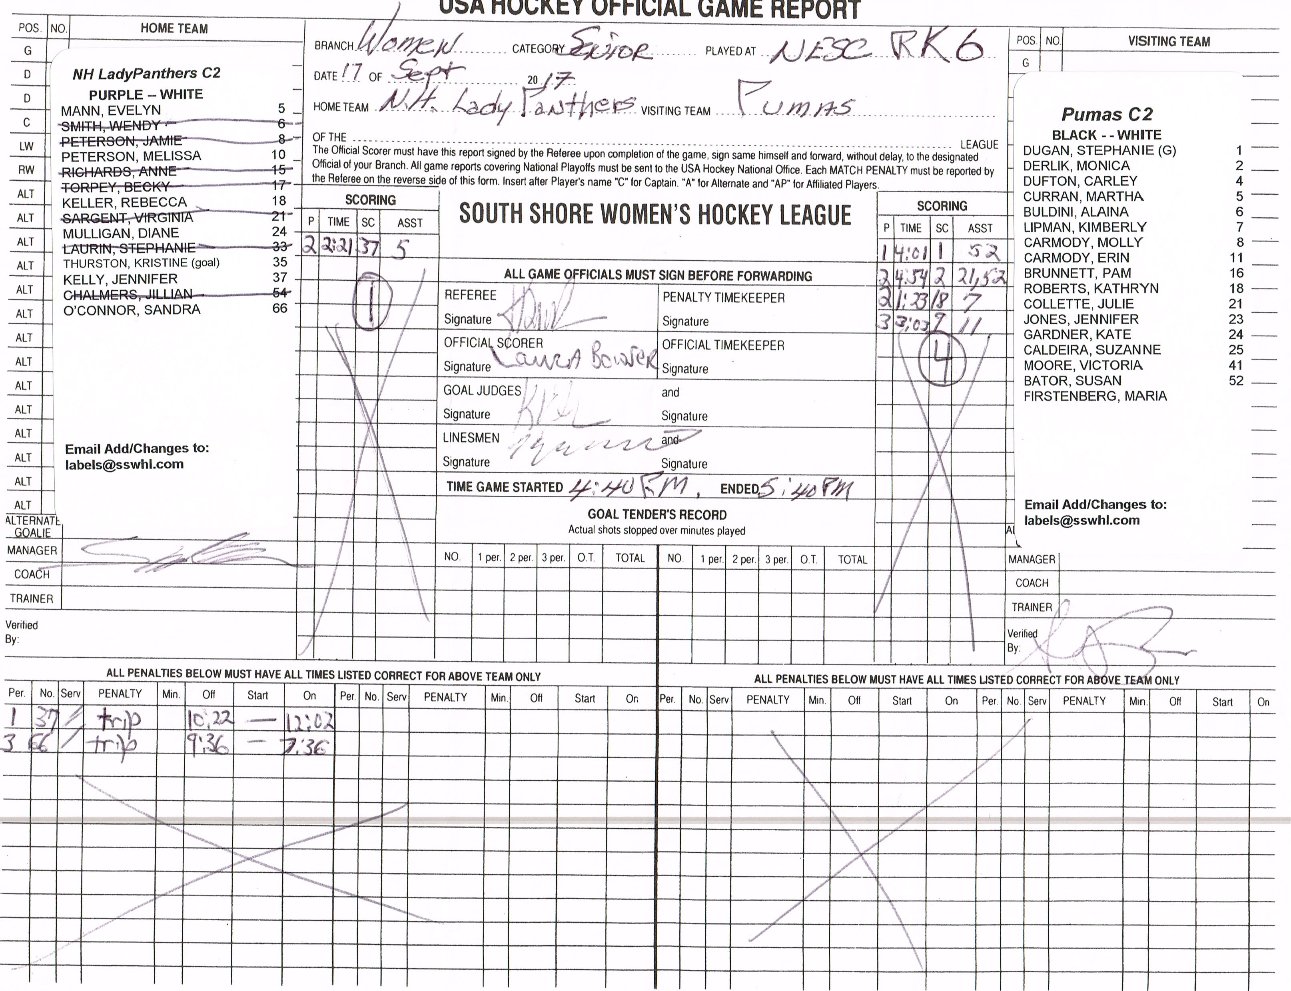 USA HOCKEY OFFICIAL GAME REPORT
POS. NO. HOME TEAM
G
D
D
C
LW
RW
ALT
ALT
ALT
ALT
ALT
ALT
ALT
ALT
ALT
ALT
ALT
ALT
ALT
ALT
ALTERNATE
GOALIE
MANAGER
COACH
TRAINER
Verified
By:
NH LadyPanthers C2
PURPLE -- WHITE
MANN, EVELYN 5
SMITH, WENDY 6
PETERSON, JAMIE 8
PETERSON, MELISSA 10
RICHARDS, ANNE 15
TORPEY, BECKY 17
KELLER, REBECCA 18
SARGENT, VIRGINIA 21
MULLIGAN, DIANE 24
LAURIN, STEPHANIE 33
THURSTON, KRISTINE (goal) 35
KELLY, JENNIFER 37
CHALMERS, JILLIAN 54
O'CONNOR, SANDRA 66
Email Add/Changes to:
labels@sswhl.com
BRANCH Women CATEGORY Senior PLAYED AT NESC RK6
DATE 17 OF Sept 20 17
HOME TEAM N.H. Lady Panthers VISITING TEAM Pumas
OF THE LEAGUE
The Official Scorer must have this report signed by the Referee upon completion of the game, sign same himself and forward, without delay, to the designated
Official of your Branch. All game reports covering National Playoffs must be sent to the USA Hockey National Office. Each MATCH PENALTY must be reported by
the Referee on the reverse side of this form. Insert after Player's name "C" for Captain. "A" for Alternate and "AP" for Affiliated Players.
SCORING
P TIME SC ASST
2 2:21 37 5
1
SOUTH SHORE WOMEN'S HOCKEY LEAGUE
ALL GAME OFFICIALS MUST SIGN BEFORE FORWARDING
REFEREE PENALTY TIMEKEEPER
Signature Signature
OFFICIAL SCORER OFFICIAL TIMEKEEPER
Signature Laura Bowser Signature
GOAL JUDGES and
Signature Signature
LINESMEN and
Signature Signature
TIME GAME STARTED 4:40 PM, ENDED 5:40 PM
GOAL TENDER'S RECORD
Actual shots stopped over minutes played
NO. 1 per. 2 per. 3 per. O.T. TOTAL NO. 1 per. 2 per. 3 per. O.T. TOTAL
SCORING
P TIME SC ASST
1 4:01 1 52
2 4:54 2 21,52
2 1:23 18 7
3 3:03 7 11
4
POS. NO. VISITING TEAM
G
Pumas C2
BLACK - - WHITE
DUGAN, STEPHANIE (G) 1
DERLIK, MONICA 2
DUFTON, CARLEY 4
CURRAN, MARTHA 5
BULDINI, ALAINA 6
LIPMAN, KIMBERLY 7
CARMODY, MOLLY 8
CARMODY, ERIN 11
BRUNNETT, PAM 16
ROBERTS, KATHRYN 18
COLLETTE, JULIE 21
JONES, JENNIFER 23
GARDNER, KATE 24
CALDEIRA, SUZANNE 25
MOORE, VICTORIA 41
BATOR, SUSAN 52
FIRSTENBERG, MARIA
Email Add/Changes to:
labels@sswhl.com
MANAGER
COACH
TRAINER
Verified
By:
ALL PENALTIES BELOW MUST HAVE ALL TIMES LISTED CORRECT FOR ABOVE TEAM ONLY
Per. No. Serv PENALTY Min. Off Start On Per. No. Serv PENALTY Min. Off Start On
1 37 / trip 10:22 — 12:02
3 66 / trip 9:36 — 7:36
ALL PENALTIES BELOW MUST HAVE ALL TIMES LISTED CORRECT FOR ABOVE TEAM ONLY
Per. No. Serv PENALTY Min. Off Start On Per. No. Serv PENALTY Min. Off Start On